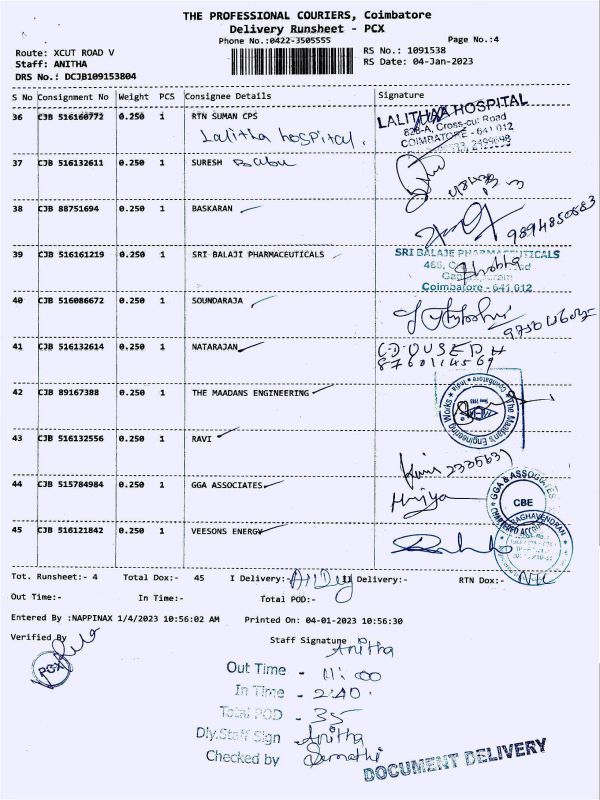 THE PROFESSIONAL COURIERS, Coimbatore
Delivery Runsheet - PCX
Phone No.:0422-3505555
Page No.:4
Route: XCUT ROAD V
RS No.: 1091538
Staff: ANITHA
RS Date: 04-Jan-2023
DRS No.: DCJB109153804
S No Consignment No Weight PCS Consignee Details Signature
36 CJB 516160772 0.250 1 RTN SUMAN CPS
Lalitha hospital.
LALITHAA HOSPITAL
828-A, Cross-cut Road
COIMBATORE - 641 012
37 CJB 516132611 0.250 1 SURESH Babu
38 CJB 88751694 0.250 1 BASKARAN
9894850583
39 CJB 516161219 0.250 1 SRI BALAJI PHARMACEUTICALS
SRI BALAJE PHARMACEUTICALS
Coimbatore - 641 012
40 CJB 516086672 0.250 1 SOUNDARAJA
41 CJB 516132614 0.250 1 NATARAJAN
42 CJB 89167388 0.250 1 THE MAADANS ENGINEERING
The Maadan's Engineering Works
Coimbatore India
43 CJB 516132556 0.250 1 RAVI
44 CJB 515784984 0.250 1 GGA ASSOCIATES
GGA & ASSOCIATES
CBE
CHARTERED ACCOUNTANTS
45 CJB 516121842 0.250 1 VEESONS ENERGY
RAGHAVENDRAN
Tot. Runsheet:- 4 Total Dox:- 45 I Delivery:- II Delivery:- RTN Dox:-
Out Time:- In Time:- Total POD:-
Entered By :NAPPINAX 1/4/2023 10:56:02 AM Printed On: 04-01-2023 10:56:30
Verified By
Staff Signature
Anitha
PCX
Out Time - 11:00
In Time - 2:40
Total POD - 35
Dly.Staff Sign Anitha
Checked by Sumathi
DOCUMENT DELIVERY